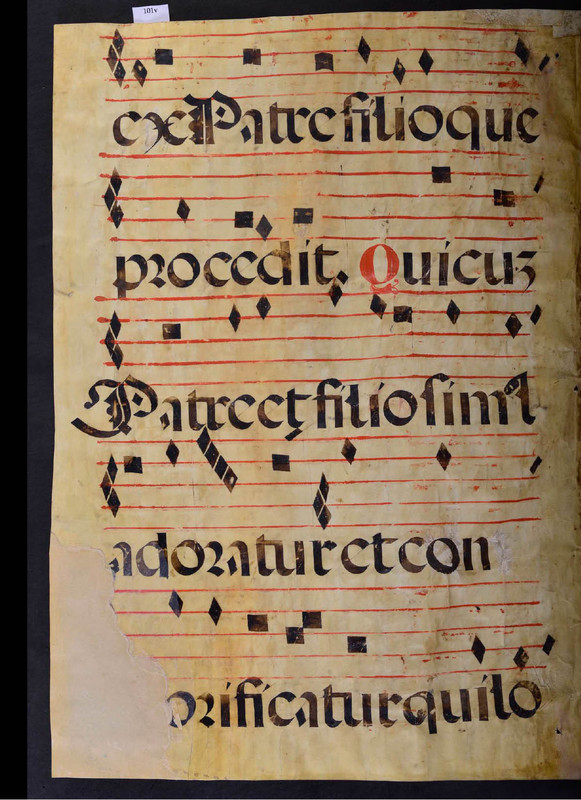 101v
ex Patre filioque
procedit. Quicuʒ
Patre et filio simul
adoratur et con
orificatur qui lo